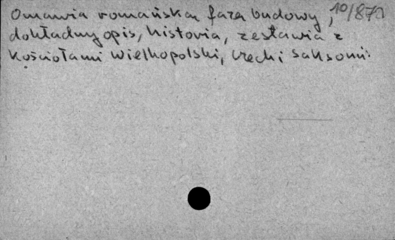 Omawia romańska faza budowy, 10/871
dokładny opis, historia, zestawia z
kościołami Wielkopolski, Czech i Saksonii